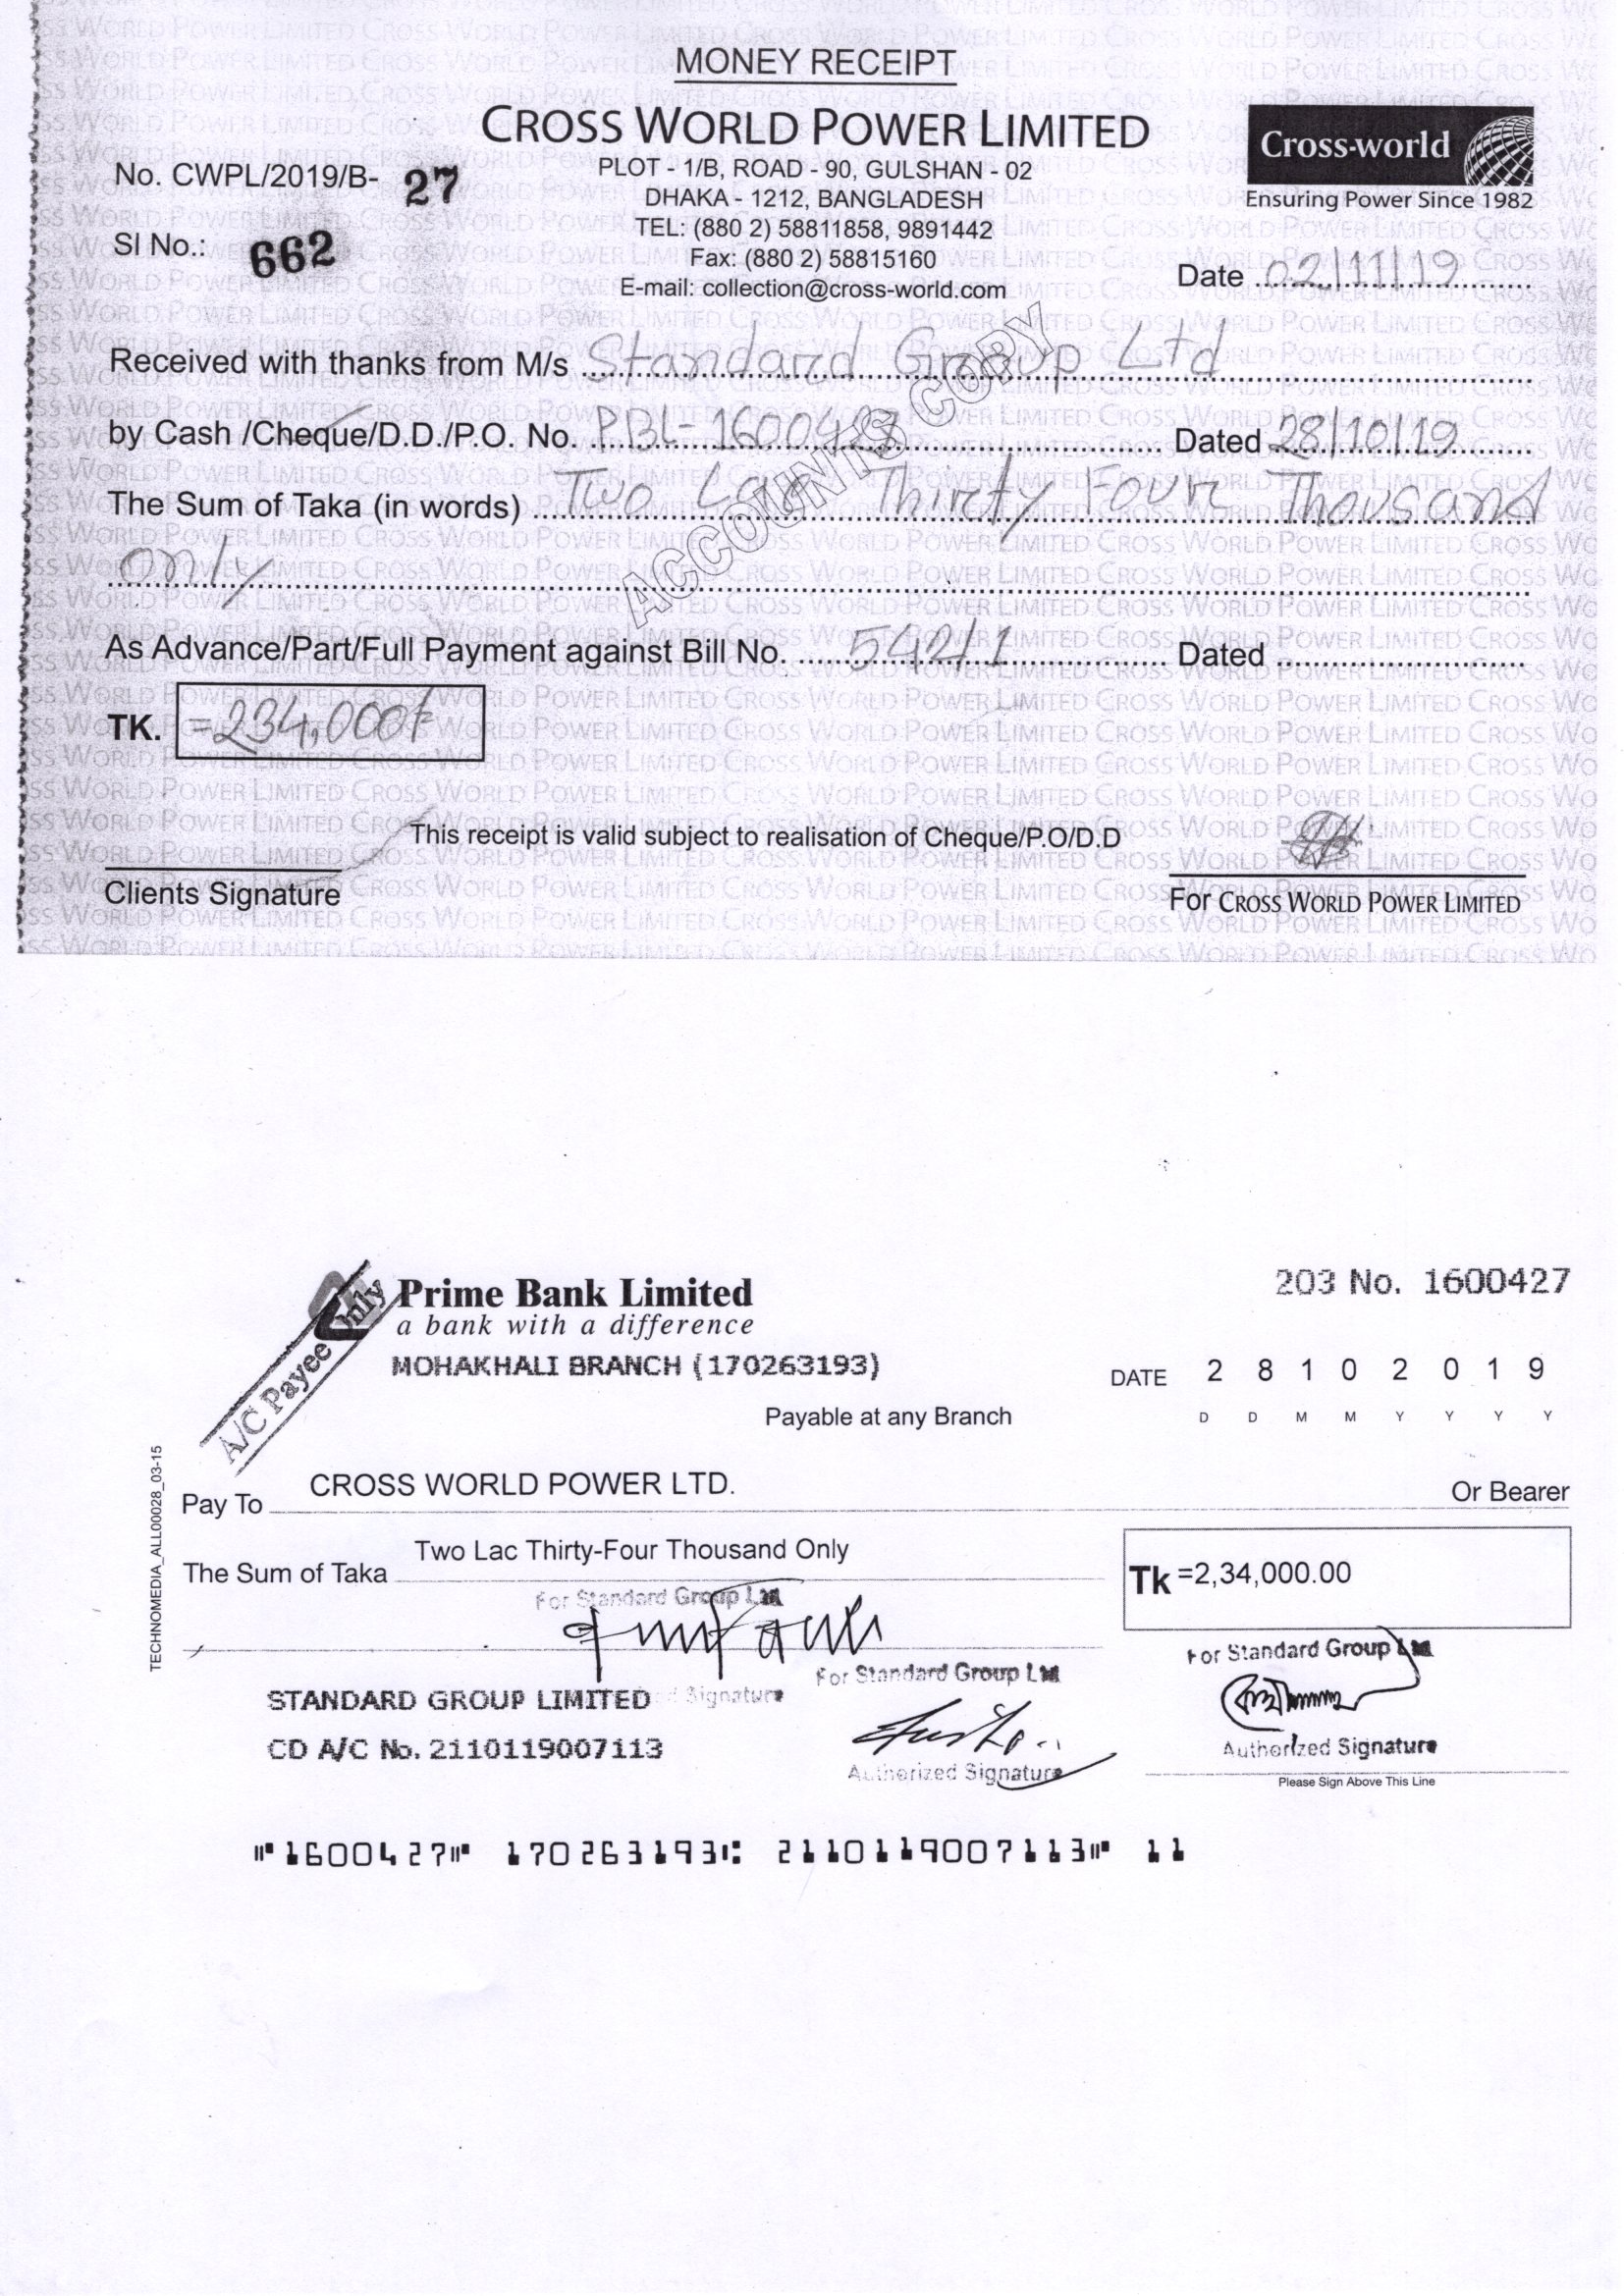 MONEY RECEIPT
CROSS WORLD POWER LIMITED
Cross-world
Ensuring Power Since 1982
No. CWPL/2019/B- 27
PLOT - 1/B, ROAD - 90, GULSHAN - 02
DHAKA - 1212, BANGLADESH
TEL: (880 2) 58811858, 9891442
Sl No.: 662
Fax: (880 2) 58815160
E-mail: collection@cross-world.com
Date 02/11/19
Received with thanks from M/s Standard Group Ltd
by Cash /Cheque/D.D./P.O. No. PBL- 1600427 Dated 28/10/19
The Sum of Taka (in words) Two Lac Thirty Four Thousand
only
ACCOUNTS COPY
As Advance/Part/Full Payment against Bill No. 54241 Dated
TK. =234,000/=
This receipt is valid subject to realisation of Cheque/P.O/D.D
Clients Signature
For CROSS WORLD POWER LIMITED
A/C Payee Only
Prime Bank Limited
a bank with a difference
203 No. 1600427
MOHAKHALI BRANCH (170263193)
DATE 2 8 1 0 2 0 1 9
D D M M Y Y Y Y
Payable at any Branch
Pay To CROSS WORLD POWER LTD. Or Bearer
The Sum of Taka Two Lac Thirty-Four Thousand Only
Tk =2,34,000.00
TECHNOMEDIA_ALL00028_03-15
For Standard Group Ltd
For Standard Group Ltd
For Standard Group Ltd
STANDARD GROUP LIMITED
Signature
CD A/C No. 2110119007113
Authorized Signature
Authorized Signature
Please Sign Above This Line
⑈1600427⑈ 170263193⑆ 2110119007113⑈ 11